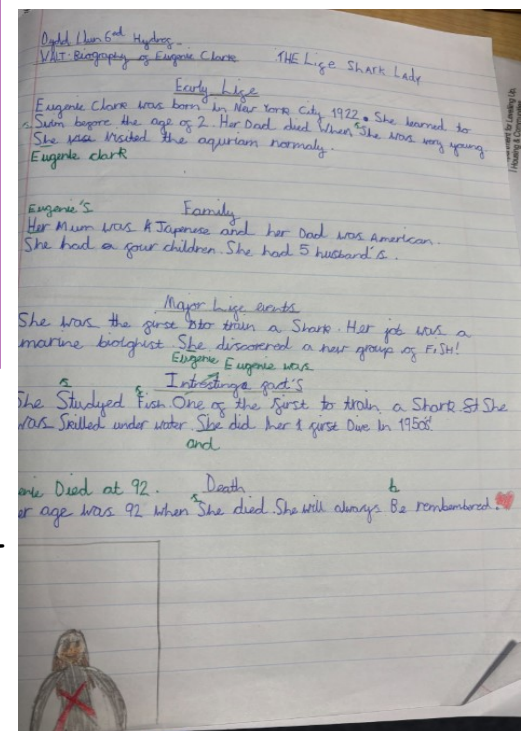 Dydd Llun 6ed Hydref
VALT: Biography of Eugenie Clarke
THE Life Shark Lady
Early Life
Eugenie Clark was born in New York City 1922. She learned to
s
Swim before the age of 2. Her Dad died When She was very young.
s
She visited the aquriam normaly.
Eugenie clark
Eugenie's
Family
Her Mum was A Japenese and her Dad was American.
She had a four children. She had 5 husband's.
Major Life events
She was the first to train a Shark. Her job was a
marine biolghist. She discovered a new group of FISH!
Eugenie Eugenie was
Intresting fact's
s
f
She Studyed Fish. One of the first to train a Shark. She
was Skilled under water. She did her 1 first Dive in 1950s'
and
enie Died at 92.
Death
b
s
er age was 92 when She died. She will always Be rembembered.